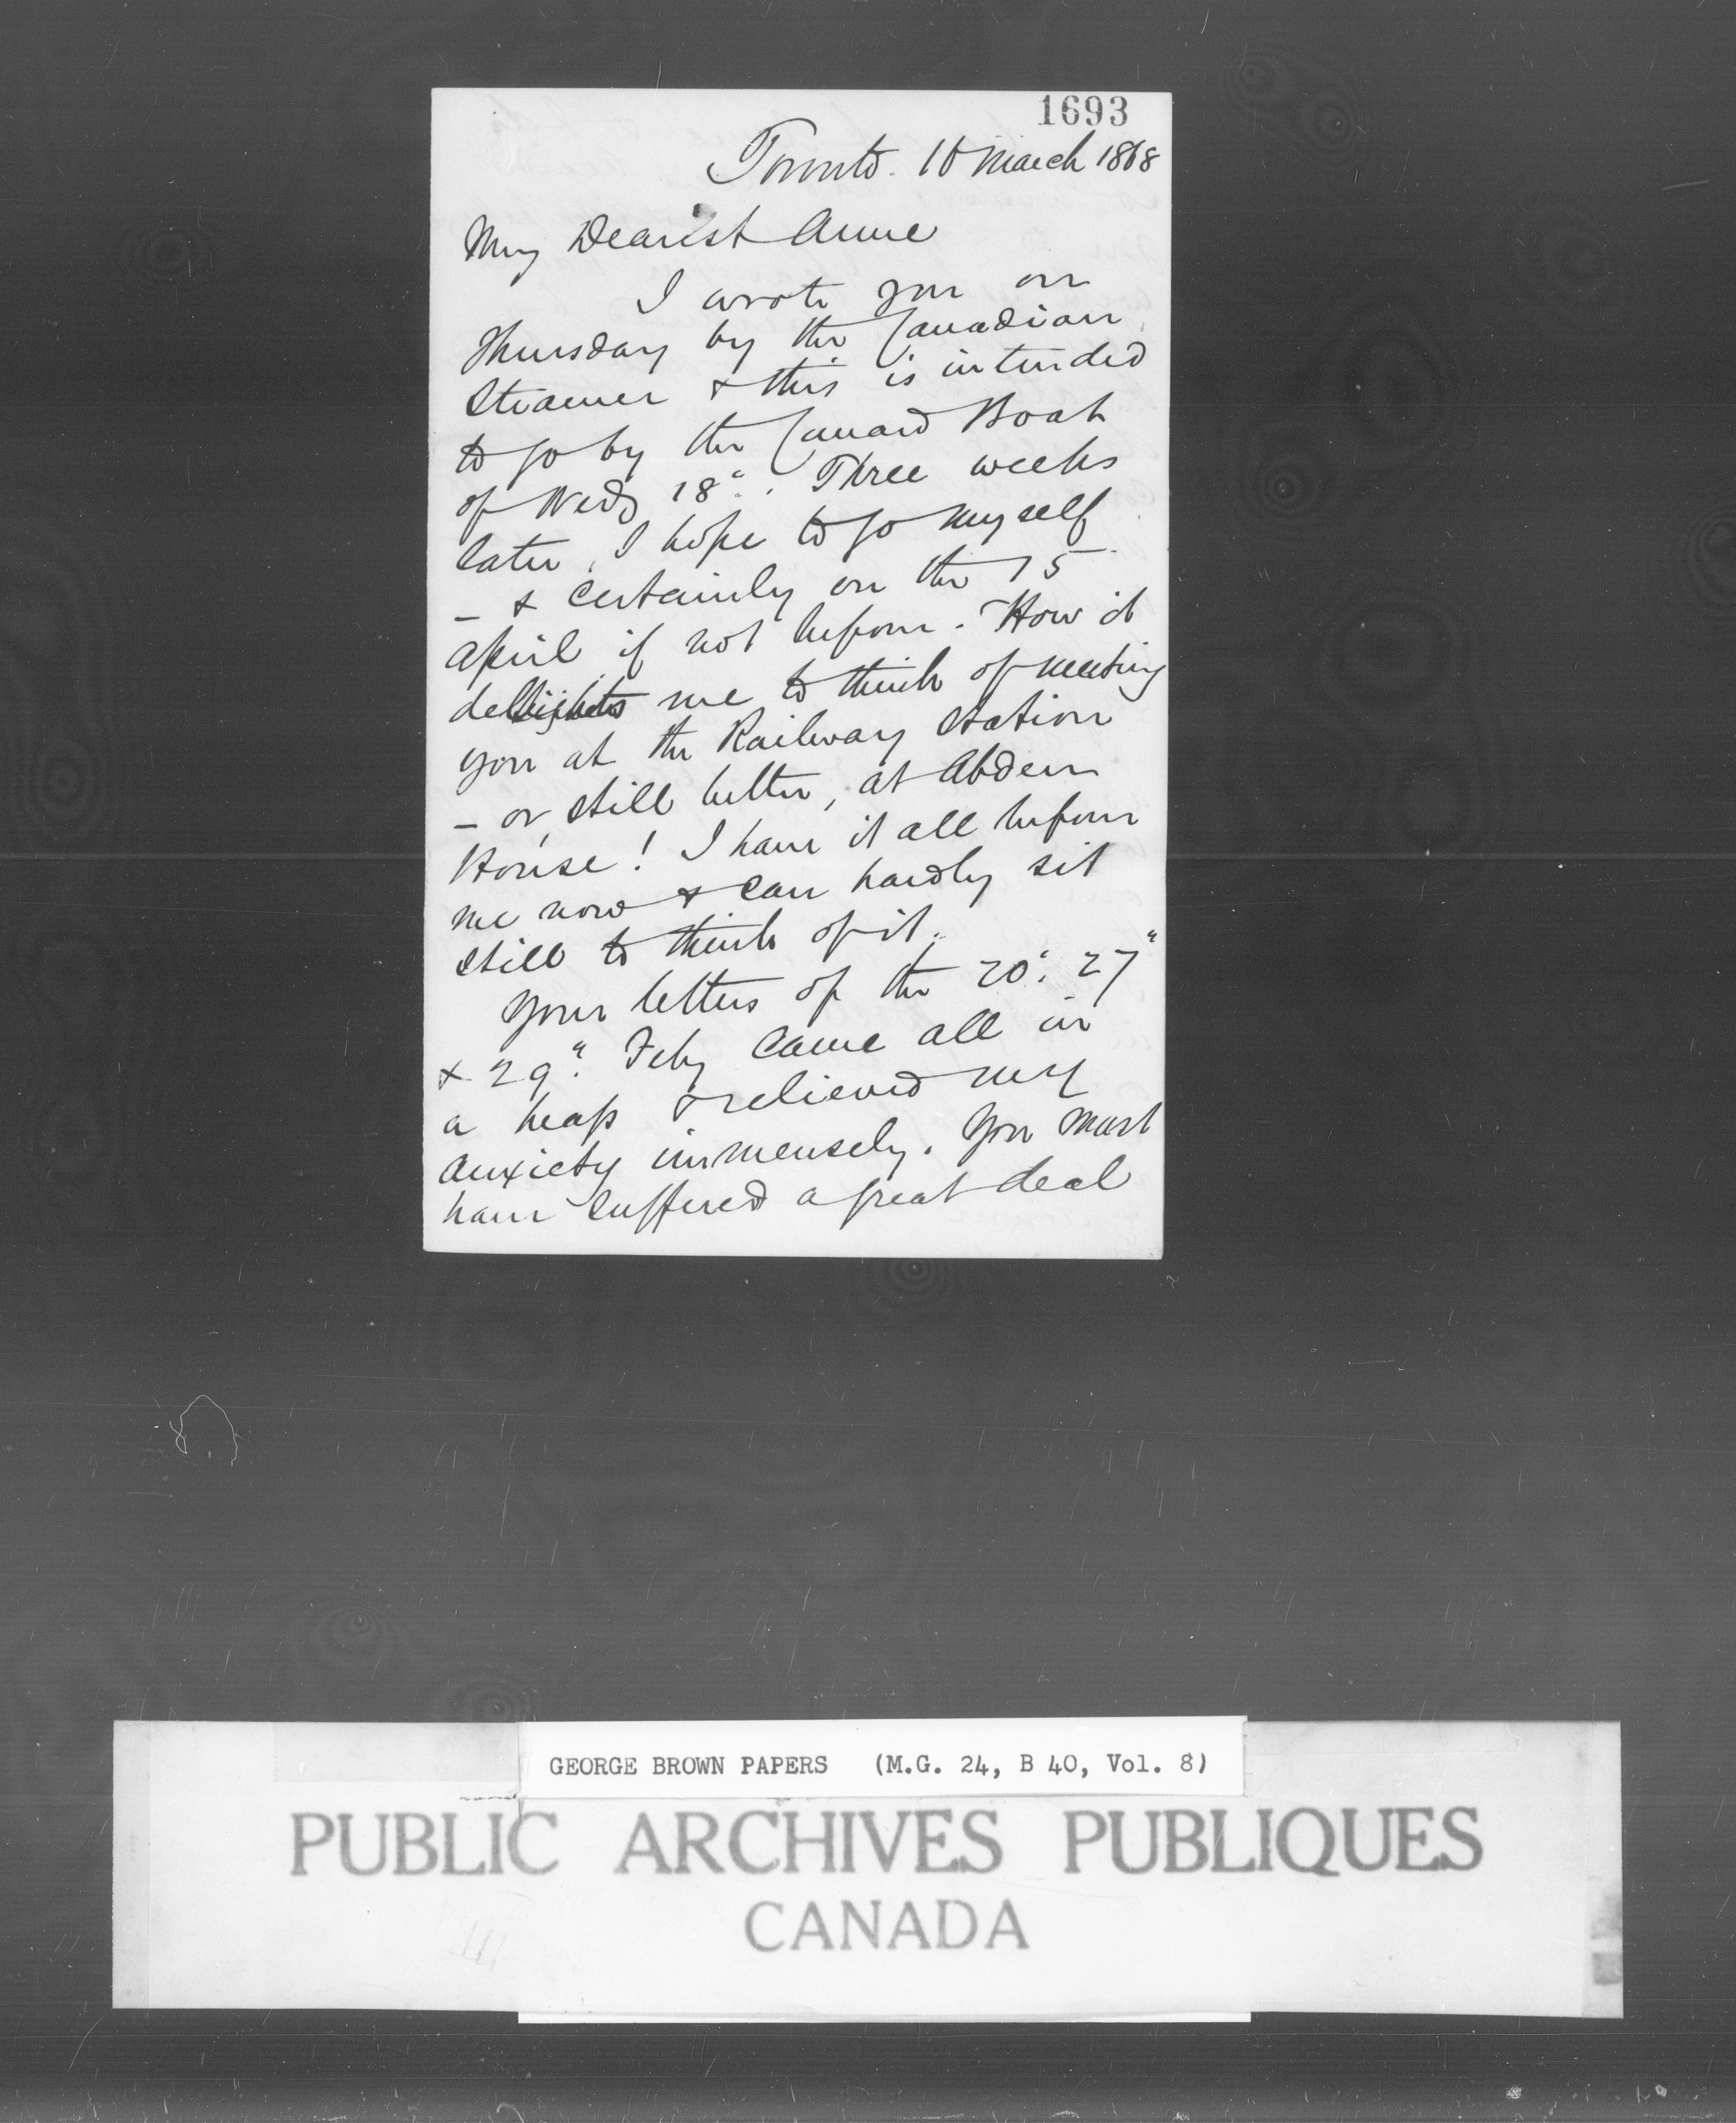 1693
Toronto. 16 March 1868
My Dearest Anne
I wrote you on
Thursday by the Canadian
Steamer & this is intended
to go by the Cunard Boat
of Wedy 18". Three weeks
later, I hope to go myself
– & certainly on the 15
April if not before. How it
delights me to think of meeting
you at the Railway Station
– or, still better, at Abden
House! I have it all before
me now & can hardly sit
still to think of it.
Your letters of the 20". 27"
& 29". Feby came all in
a heap & relieved my
anxiety immensely. You must
have suffered a great deal
GEORGE BROWN PAPERS (M.G. 24, B 40, Vol. 8)
PUBLIC ARCHIVES PUBLIQUES
CANADA